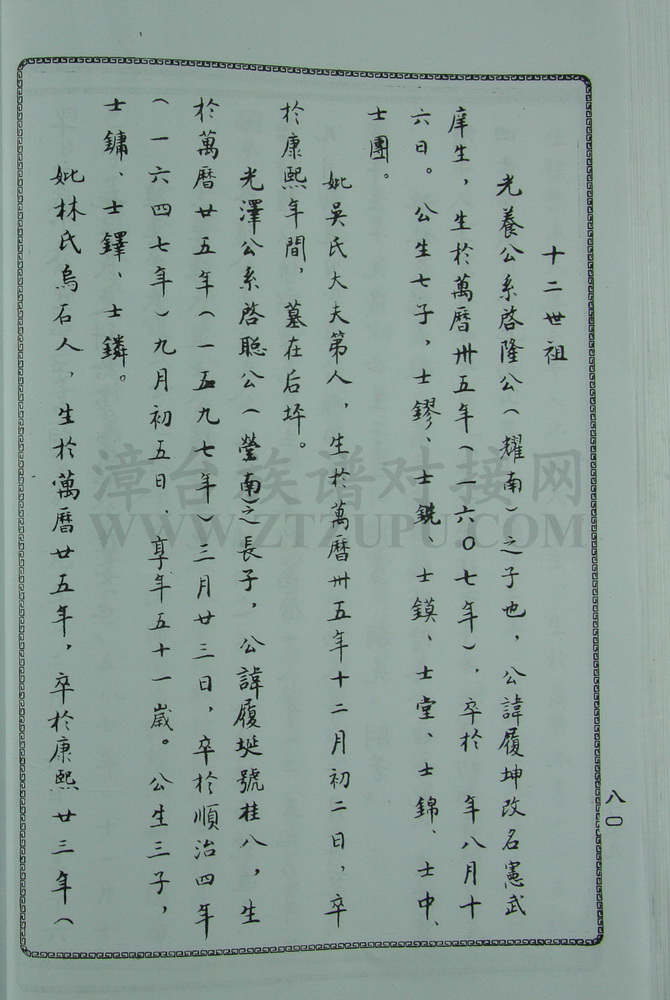 十二世祖
光養公系啓隆公（耀南）之子也，公諱履坤改名憲武
庠生，生於萬曆卅五年（一六〇七年），卒於　年八月十
六日。公生七子，士鏐、士銑、士鏌、士堂、士錦、士中、
士團。
妣吳氏大夫第人，生於萬曆卅五年十二月初二日，卒
於康熙年間，墓在后坪。
光澤公系啓聰公（瑩南）之長子，公諱履埏號桂八，生
於萬曆廿五年（一五九七年）三月廿三日，卒於順治四年
（一六四七年）九月初五日，享年五十一嵗。公生三子，
士鏞、士鐸、士鏻。
妣林氏烏石人，生於萬曆廿五年，卒於康熙廿三年（
八〇
漳台族谱对接网
WWW.ZTZUPU.COM